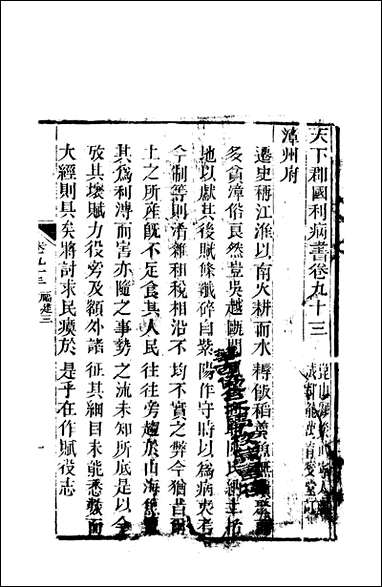 天下郡國利病書卷九十三
漳州府
遷史稱江淮以南火耕而水耨飯稻羹魚無積聚而
多貧漳俗良然豈吳越甌閩 陳氏納土
地以獻其後賦條纖碎自紫陽作守時以為病夫考
今制等則淆雜租稅相沿不均不實之弊今猶昔爾
土之所產既不足食其人民往往旁趨於山海
其為利溥而害亦隨之事勢之流未知所底是以今
攷其壤賦力役旁及額外諸征其綱目未能悉載而
大經則具矣將討求民瘼於是乎在作賦役志
卷九十三 福建三